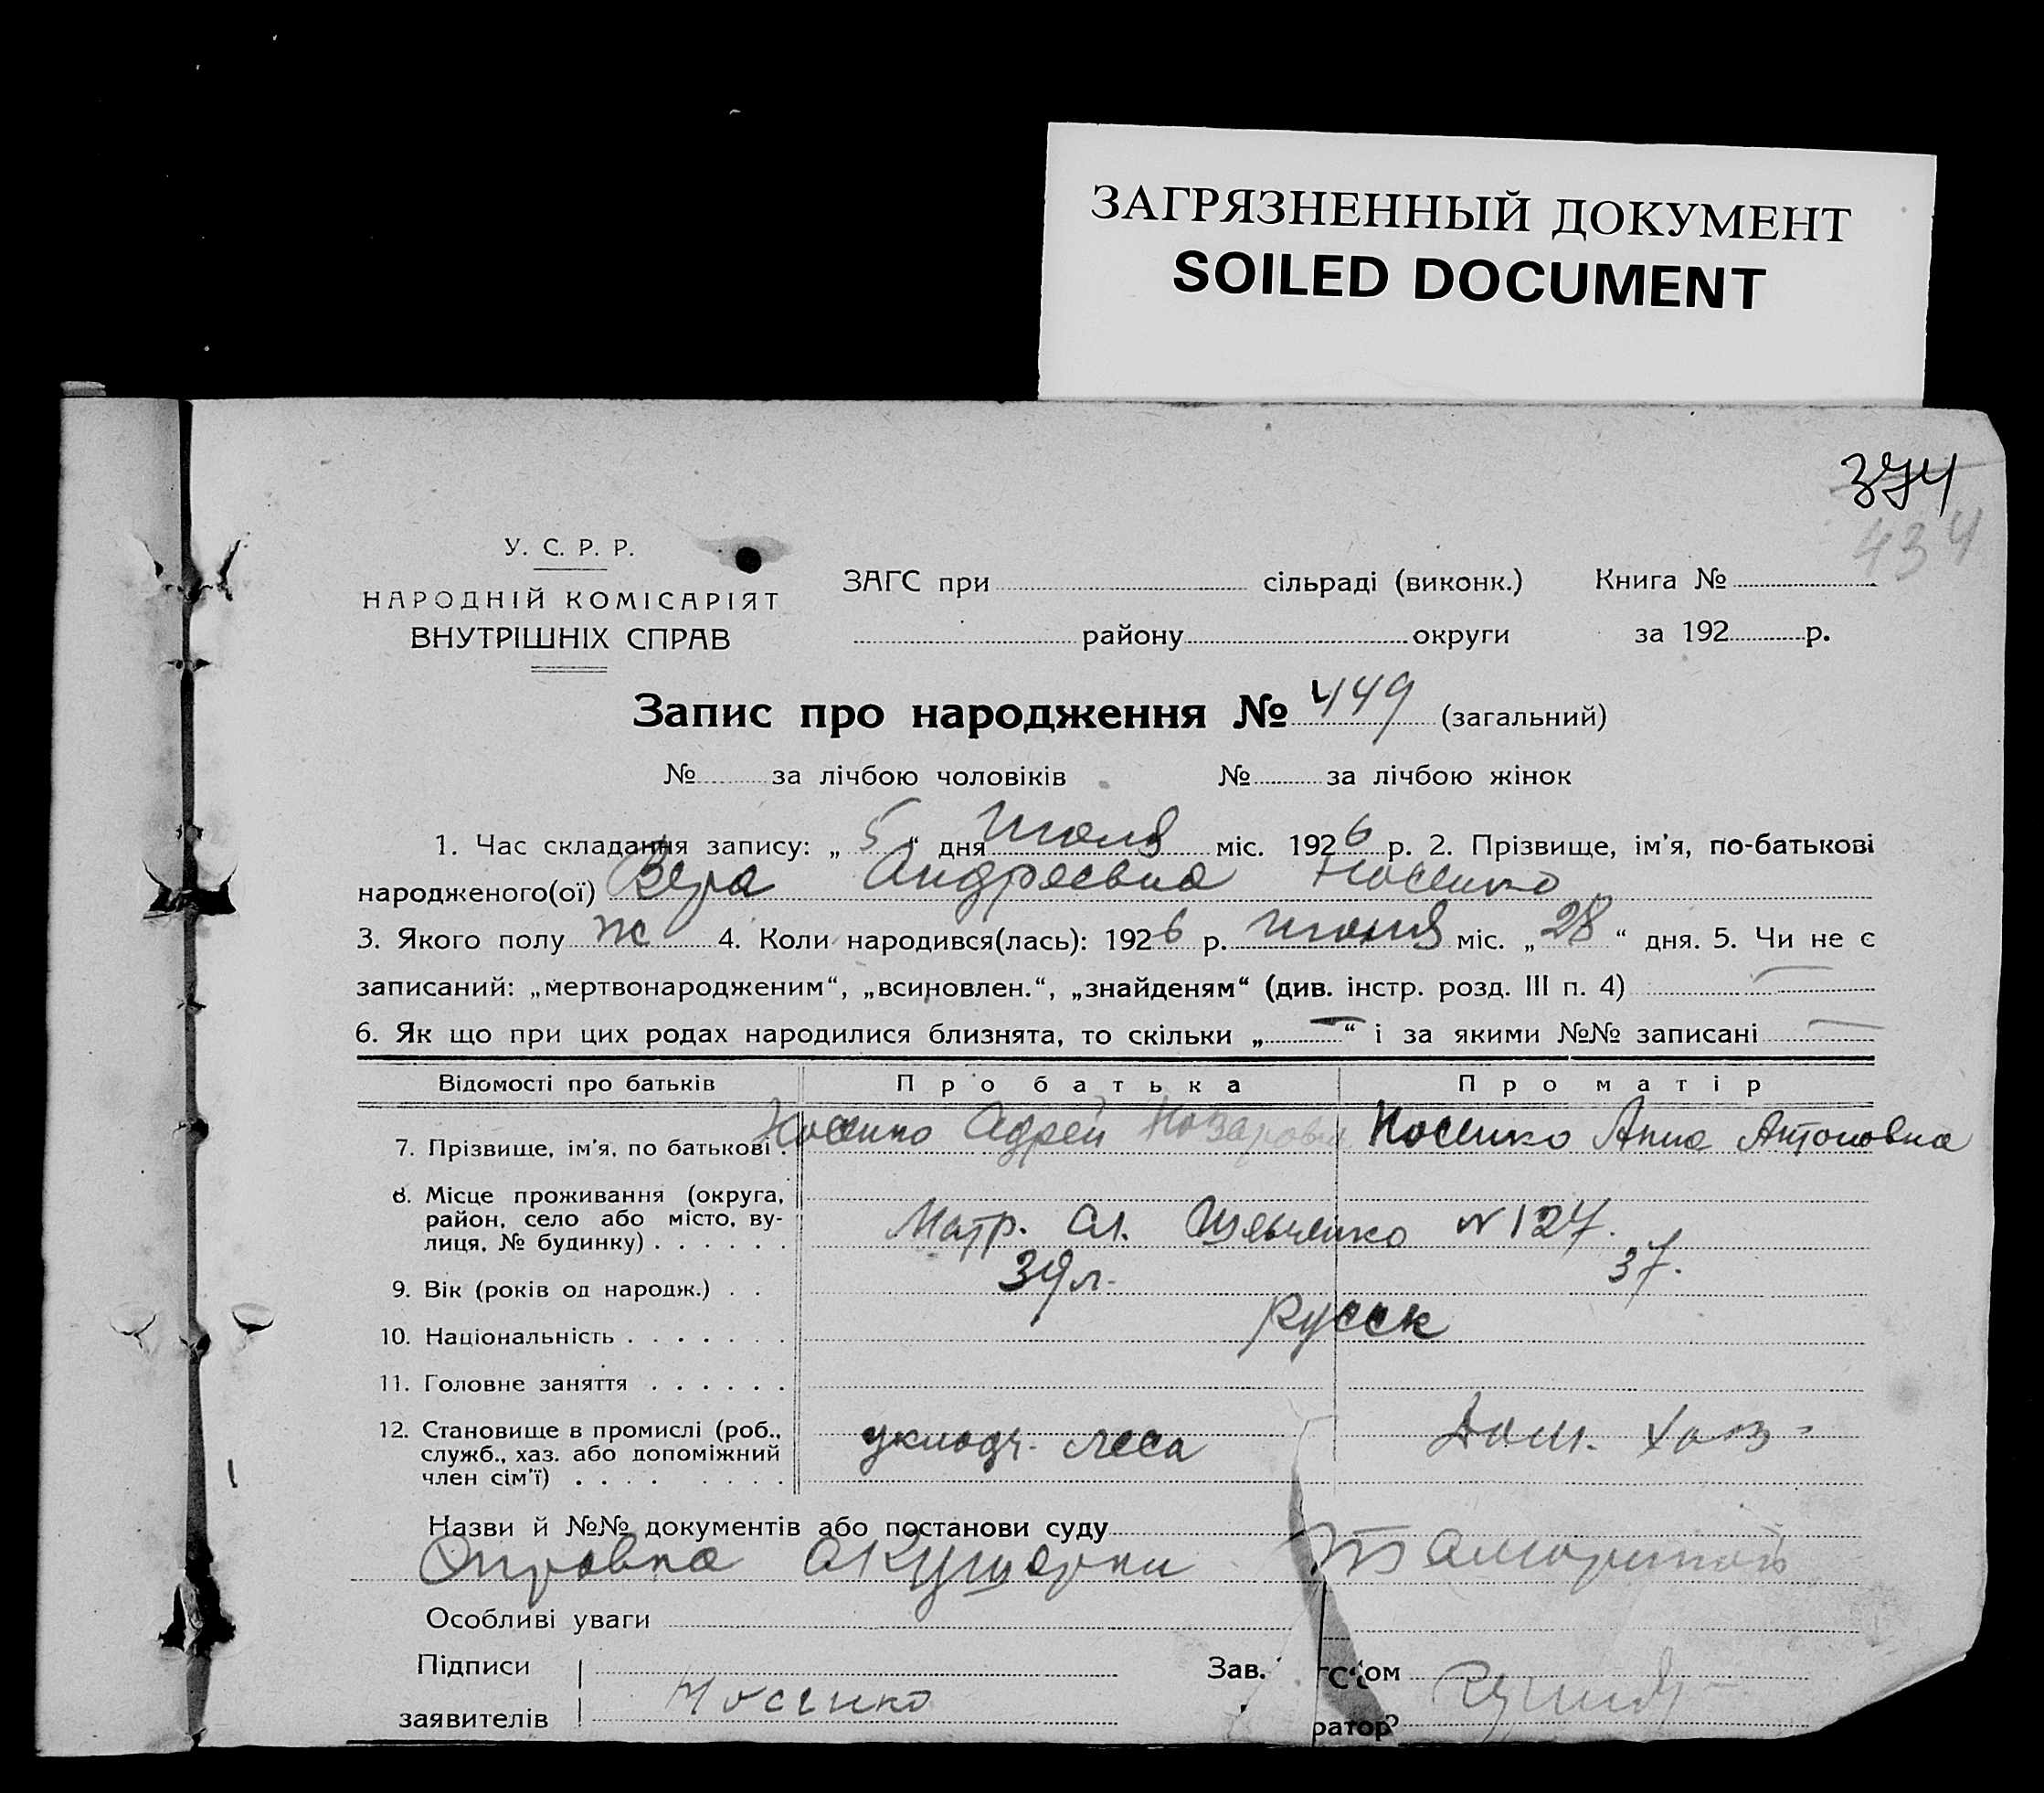 ЗАГРЯЗНЕННЫЙ ДОКУМЕНТ
SOILED DOCUMENT
374
434
У. С. Р. Р.
НАРОДНІЙ КОМІСАРІЯТ
ВНУТРІШНІХ СПРАВ
ЗАГС при сільраді (виконк.) Книга №
району округи за 192 р.
Запис про народження № 449 (загальний)
№ за лічбою чоловіків № за лічбою жінок
1. Час складання запису: „ 5 “ дня июля міс. 1926 р. 2. Прізвище, ім'я, по-батькові
народженого(ої) Вера Андреевна Носенко
3. Якого полу ж 4. Коли народився(лась): 1926 р. июня міс. „ 28 “ дня. 5. Чи не є
записаний: „мертвонародженим“, „всиновлен.“, „знайденям“ (див. інстр. розд. III п. 4) —
6. Як що при цих родах народилися близнята, то скільки „ — “ і за якими №№ записані —
Відомості про батьків Про батька Про матір
7. Прізвище, ім'я, по батькові . Носенко Адрей Назарович Носенко Анна Антоновна
8. Місце проживання (округа,
район, село або місто, ву-
лиця, № будинку) . . . . . . Матр. Сл. Шевченко № 127.
9. Вік (років од народж.) . . 39 л. 37.
10. Національність . . . . . . . Русск
11. Головне заняття . . . . . .
12. Становище в промислі (роб.,
служб., хаз. або допоміжний
член сім'ї) . . . . . . . . укладч. леса Дом. хоз-
Назви й №№ документів або постанови суду
Справка акушерки
Особливі уваги
Підписи
заявителів Носенко
Зав. ГС'ом
ратор